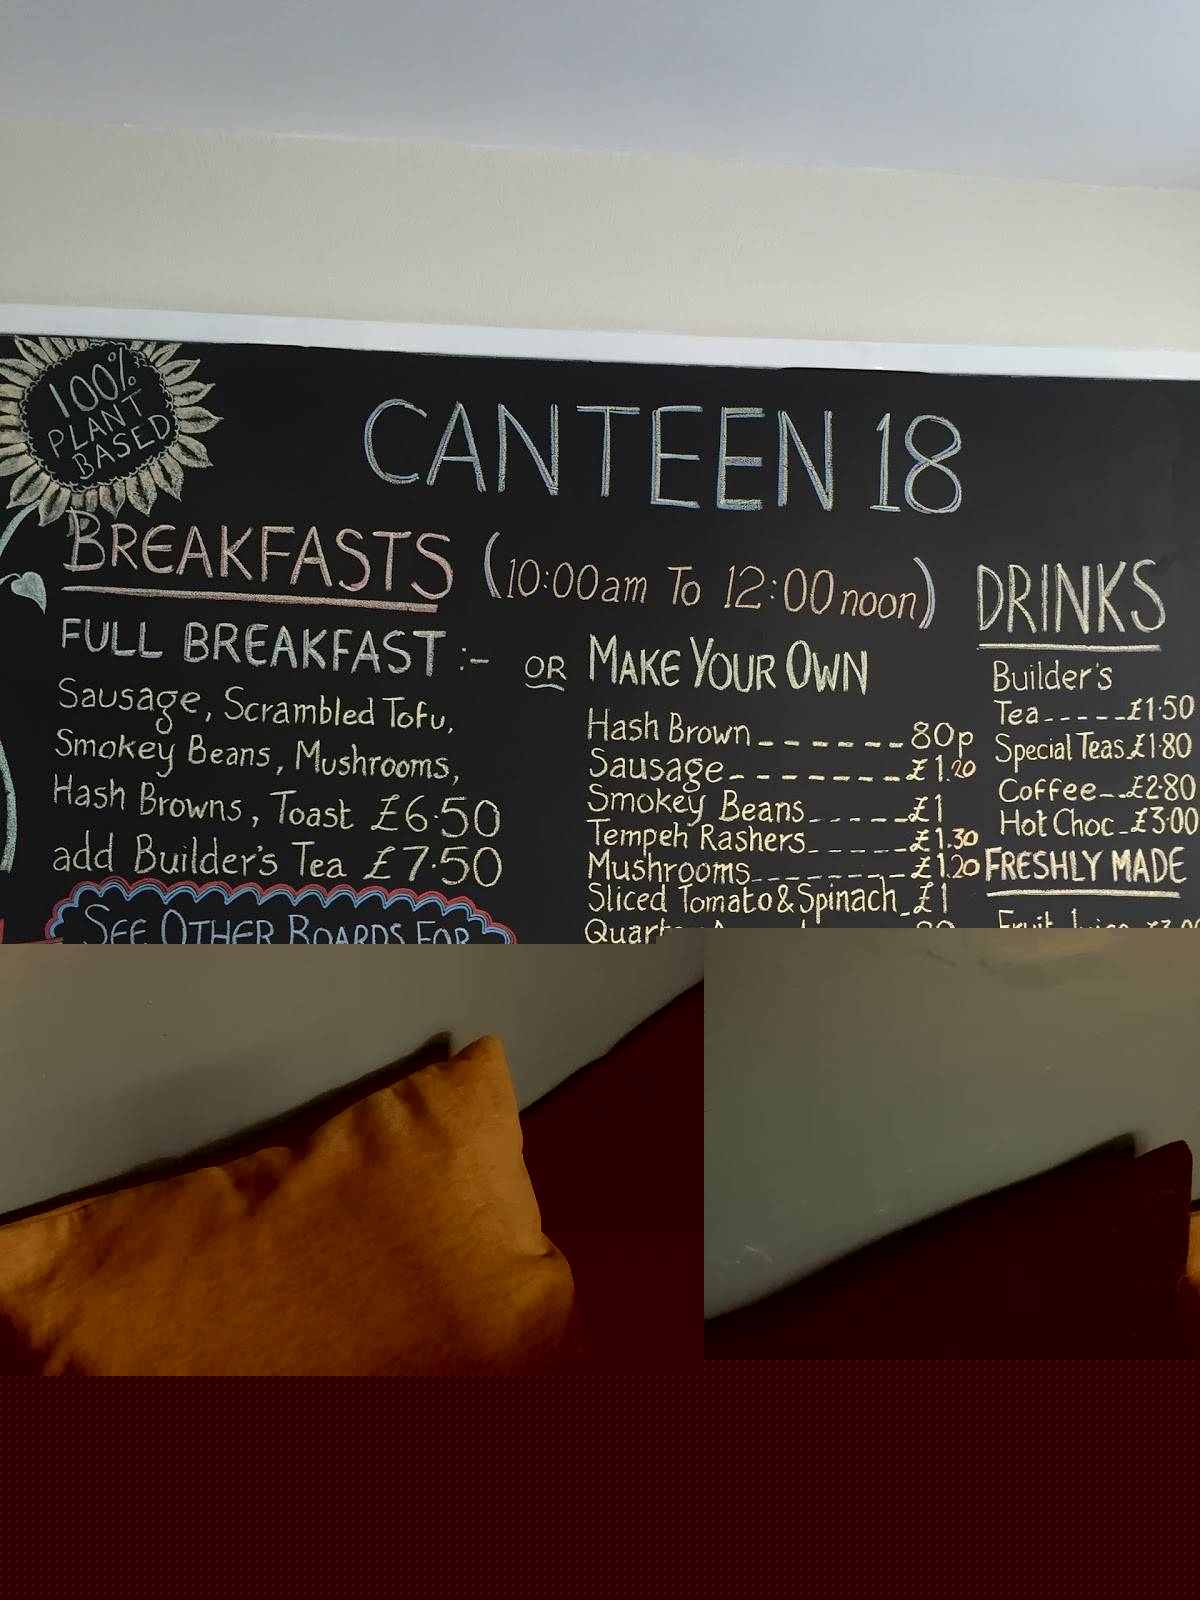 100%
PLANT
BASED
CANTEEN 18
BREAKFASTS (10:00am To 12:00 noon)
FULL BREAKFAST :-
Sausage, Scrambled Tofu,
Smokey Beans, Mushrooms,
Hash Browns, Toast £6·50
add Builder's Tea £7·50
SEE OTHER BOARDS FOR
OR MAKE YOUR OWN
Hash Brown ------- 80p
Sausage -------- £1.20
Smokey Beans ----- £1
Tempeh Rashers ----- £1.30
Mushrooms -------- £1.20
Sliced Tomato & Spinach - £1
DRINKS
Builder's
Tea ----- £1·50
Special Teas £1·80
Coffee -- £2·80
Hot Choc - £3·00
FRESHLY MADE
Fruit Juice